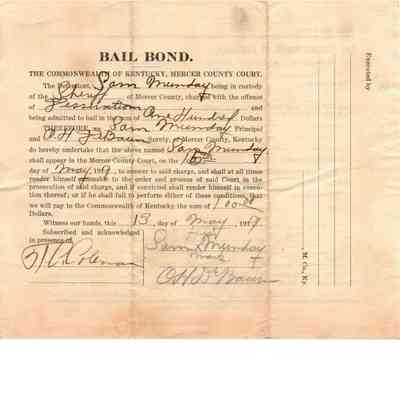 BAIL BOND.
THE COMMONWEALTH OF KENTUCKY, MERCER COUNTY COURT.
The Defendant, Sam Munday being in custody
of the Sheriff of Mercer County, charged with the offense
of and
being to bail in the sum of One Hundred Dollars
THEREFORE, we Sam Munday Principal
and O H D Baun Surety, of Mercer County, Kentucky
do hereby undertake that the above named Sam Munday
shall appear in the Mercer County Court, on the
day of May 1919, to answer to said charge, and shall at all times
render himself amenable to the order and process of said Court in the
prosecution of said charge, and if convicted shall render himself in execu-
tion thereof; or if he shall fail to perform either of these conditions, that
we will pay to the Commonwealth of Kentucky the sum of 100
Dollars.
Witness our hands, this 13 day of May 1919
Subscribed and acknowledged
in presence of
Coleman
Sam X Munday
mark
O H D Baun
Executed by
M. Co., Ky.